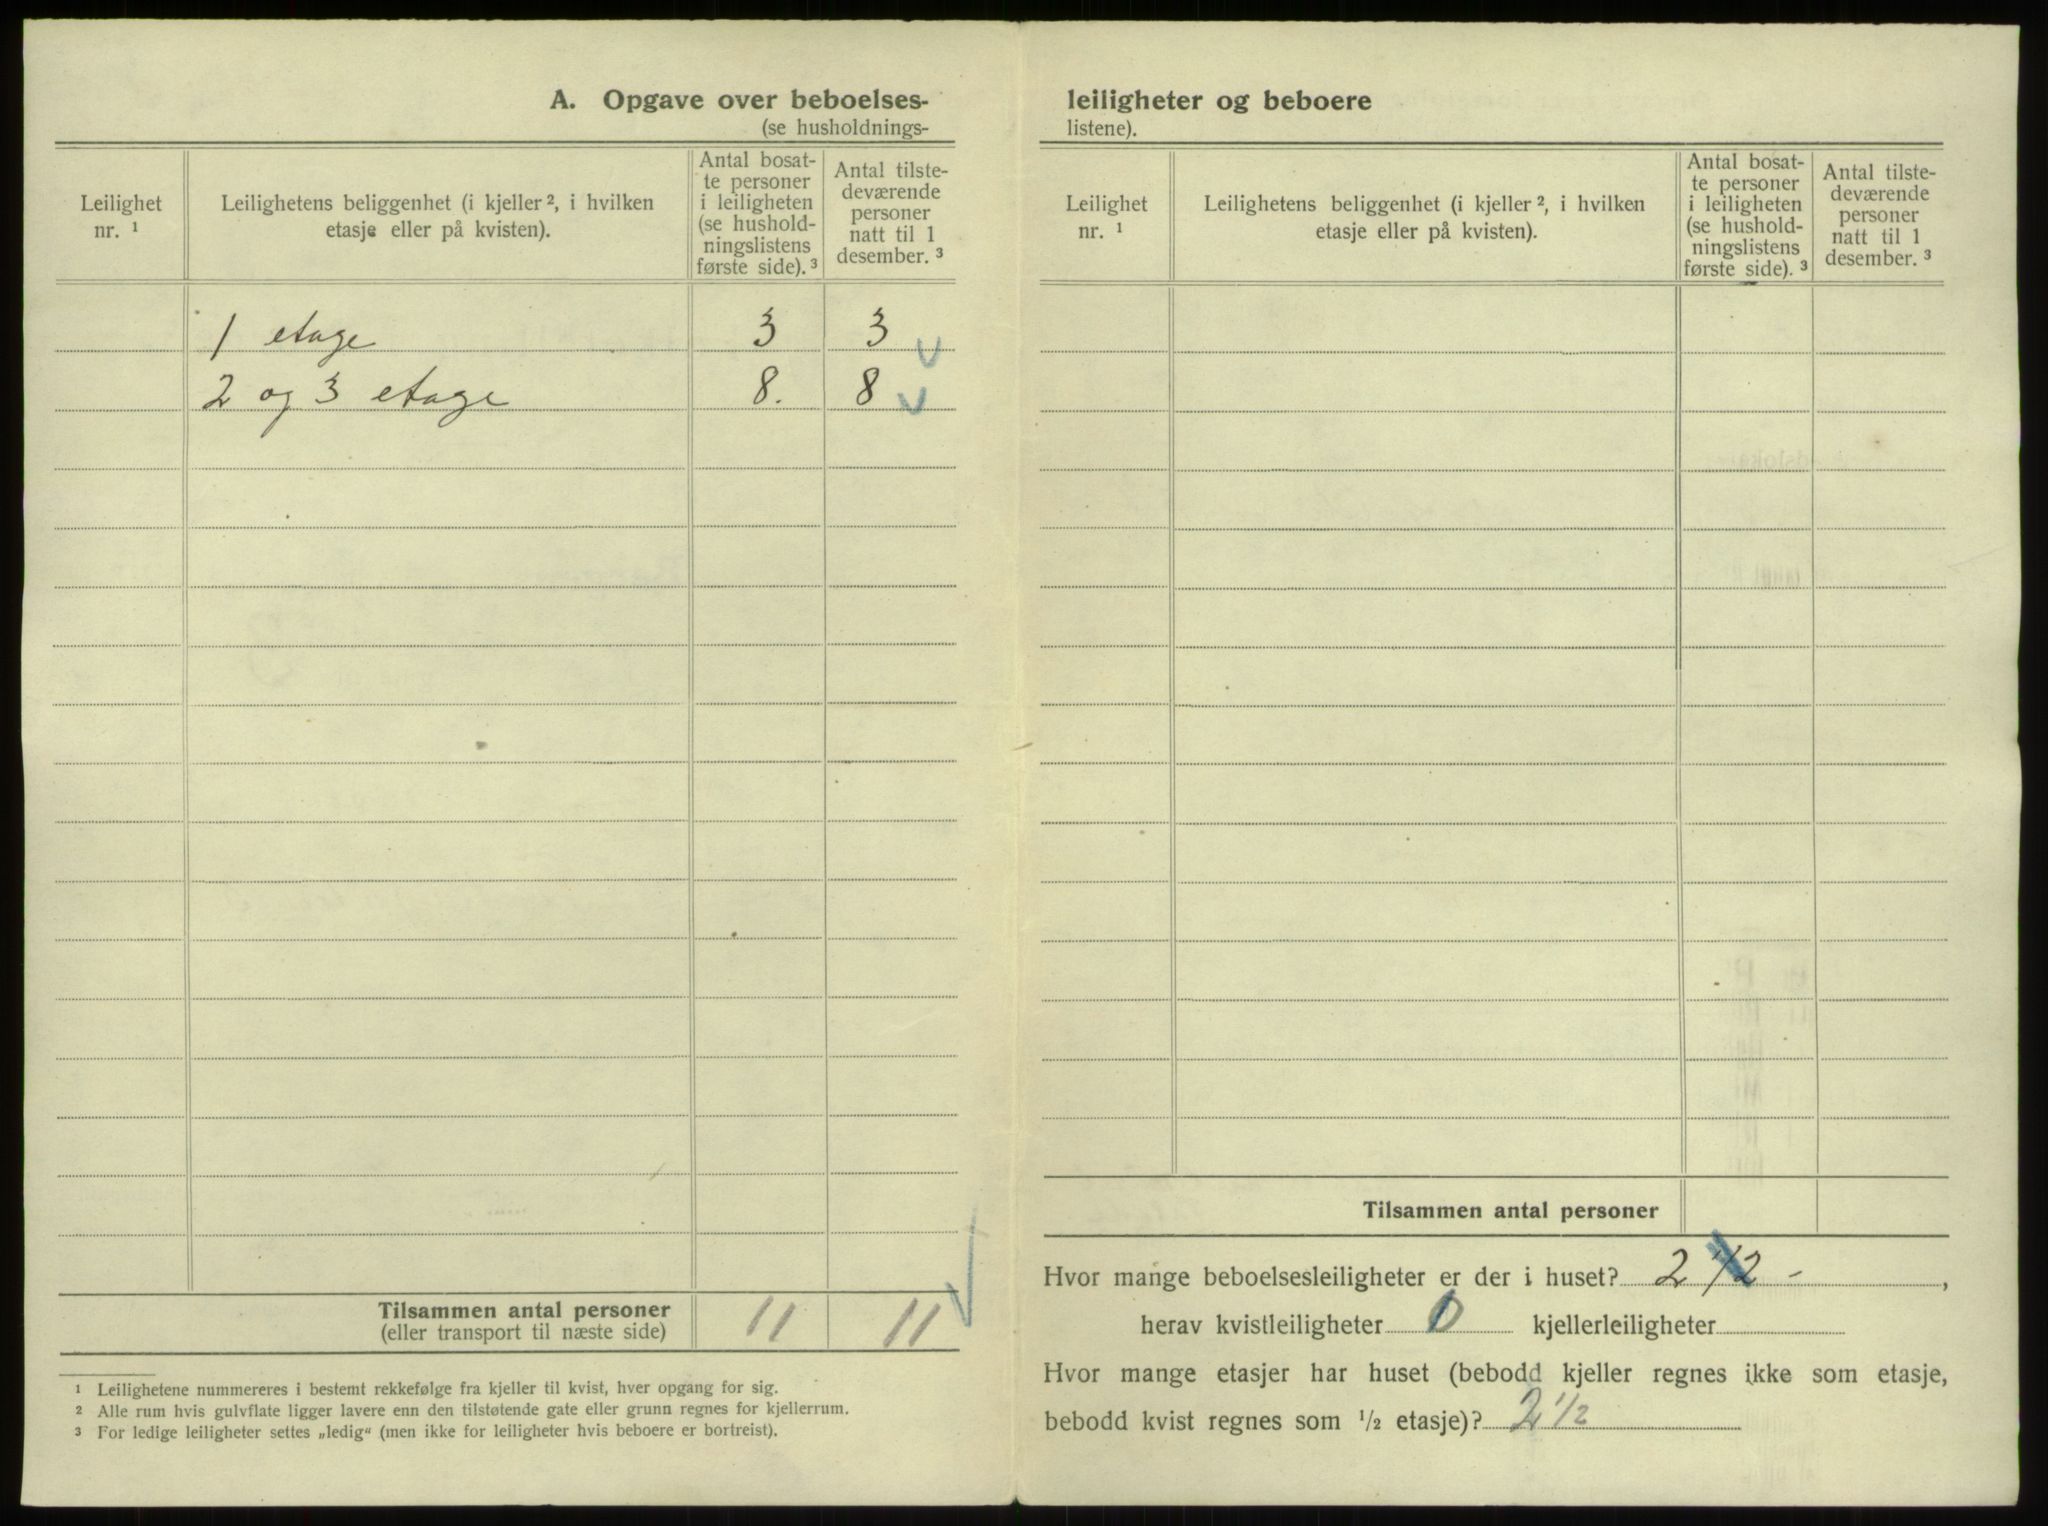 A. Opgave over beboelses-
(se husholdnings-
Leilighet nr. 1
Leilighetens beliggenhet (i kjeller 2, i hvilken
etasje eller på kvisten).
Antal bosat-
te personer
i leiligheten
(se hushold-
ningslistens
første side). 3
Antal tilste-
deværende
personer
natt til 1
desember. 3
1 etage 3 3
2 og 3 etage 8. 8
Tilsammen antal personer 11 11
(eller transport til næste side)
1 Leilighetene nummereres i bestemt rekkefølge fra kjeller til kvist, hver opgang for sig.
2 Alle rum hvis gulvflate ligger lavere enn den tilstøtende gate eller grunn regnes for kjellerrum.
3 For ledige leiligheter settes „ledig“ (men ikke for leiligheter hvis beboere er bortreist).
leiligheter og beboere
listene).
Leilighet nr. 1
Leilighetens beliggenhet (i kjeller 2, i hvilken
etasje eller på kvisten).
Antal bosat-
te personer
i leiligheten
(se hushold-
ningslistens
første side). 3
Antal tilste-
deværende
personer
natt til 1
desember. 3
Tilsammen antal personer
Hvor mange beboelsesleiligheter er der i huset? 2 1/2 -,
herav kvistleiligheter 0 kjellerleiligheter
Hvor mange etasjer har huset (bebodd kjeller regnes ikke som etasje,
bebodd kvist regnes som 1/2 etasje)? 2 1/2